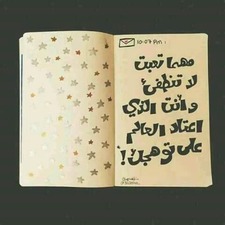 10:07 PM :
مهما تعبت
لا تنطفئ
وأنت الذي
اعتاد العالم
على توهجك!